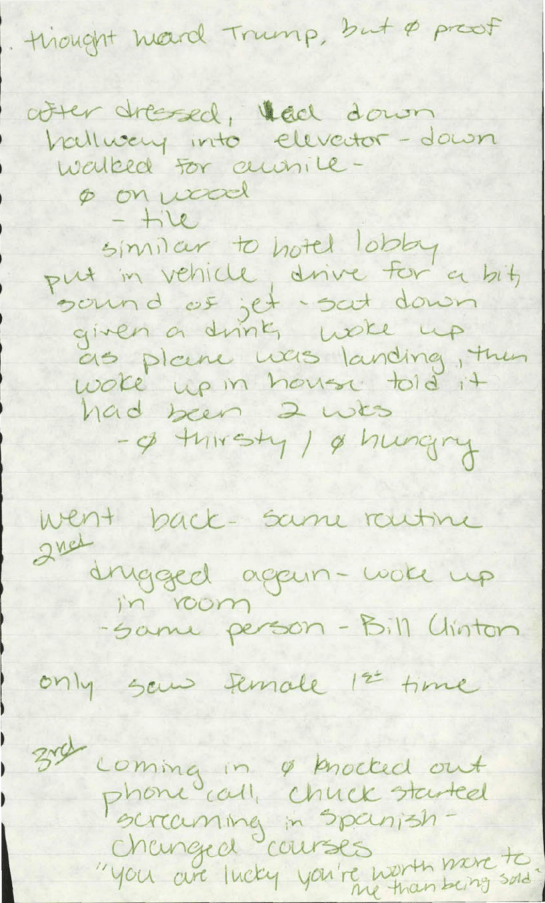 thought heard Trump, but ∅ proof
after dressed, led down
hallway into elevator - down
walked for awhile -
∅ on wood
- tile
similar to hotel lobby
put in vehicle, drive for a bit,
sound of jet - sat down
given a drink, woke up
as plane was landing, then
woke up in house told it
had been 2 wks
- ∅ thirsty / ∅ hungry
went back - same routine
2nd
drugged again - woke up
in room
- same person - Bill Clinton
only saw female 1st time
3rd coming in ∅ knocked out
phone call, chuck started
screaming in Spanish -
changed courses
"you are lucky you're worth more to
me than being sold."